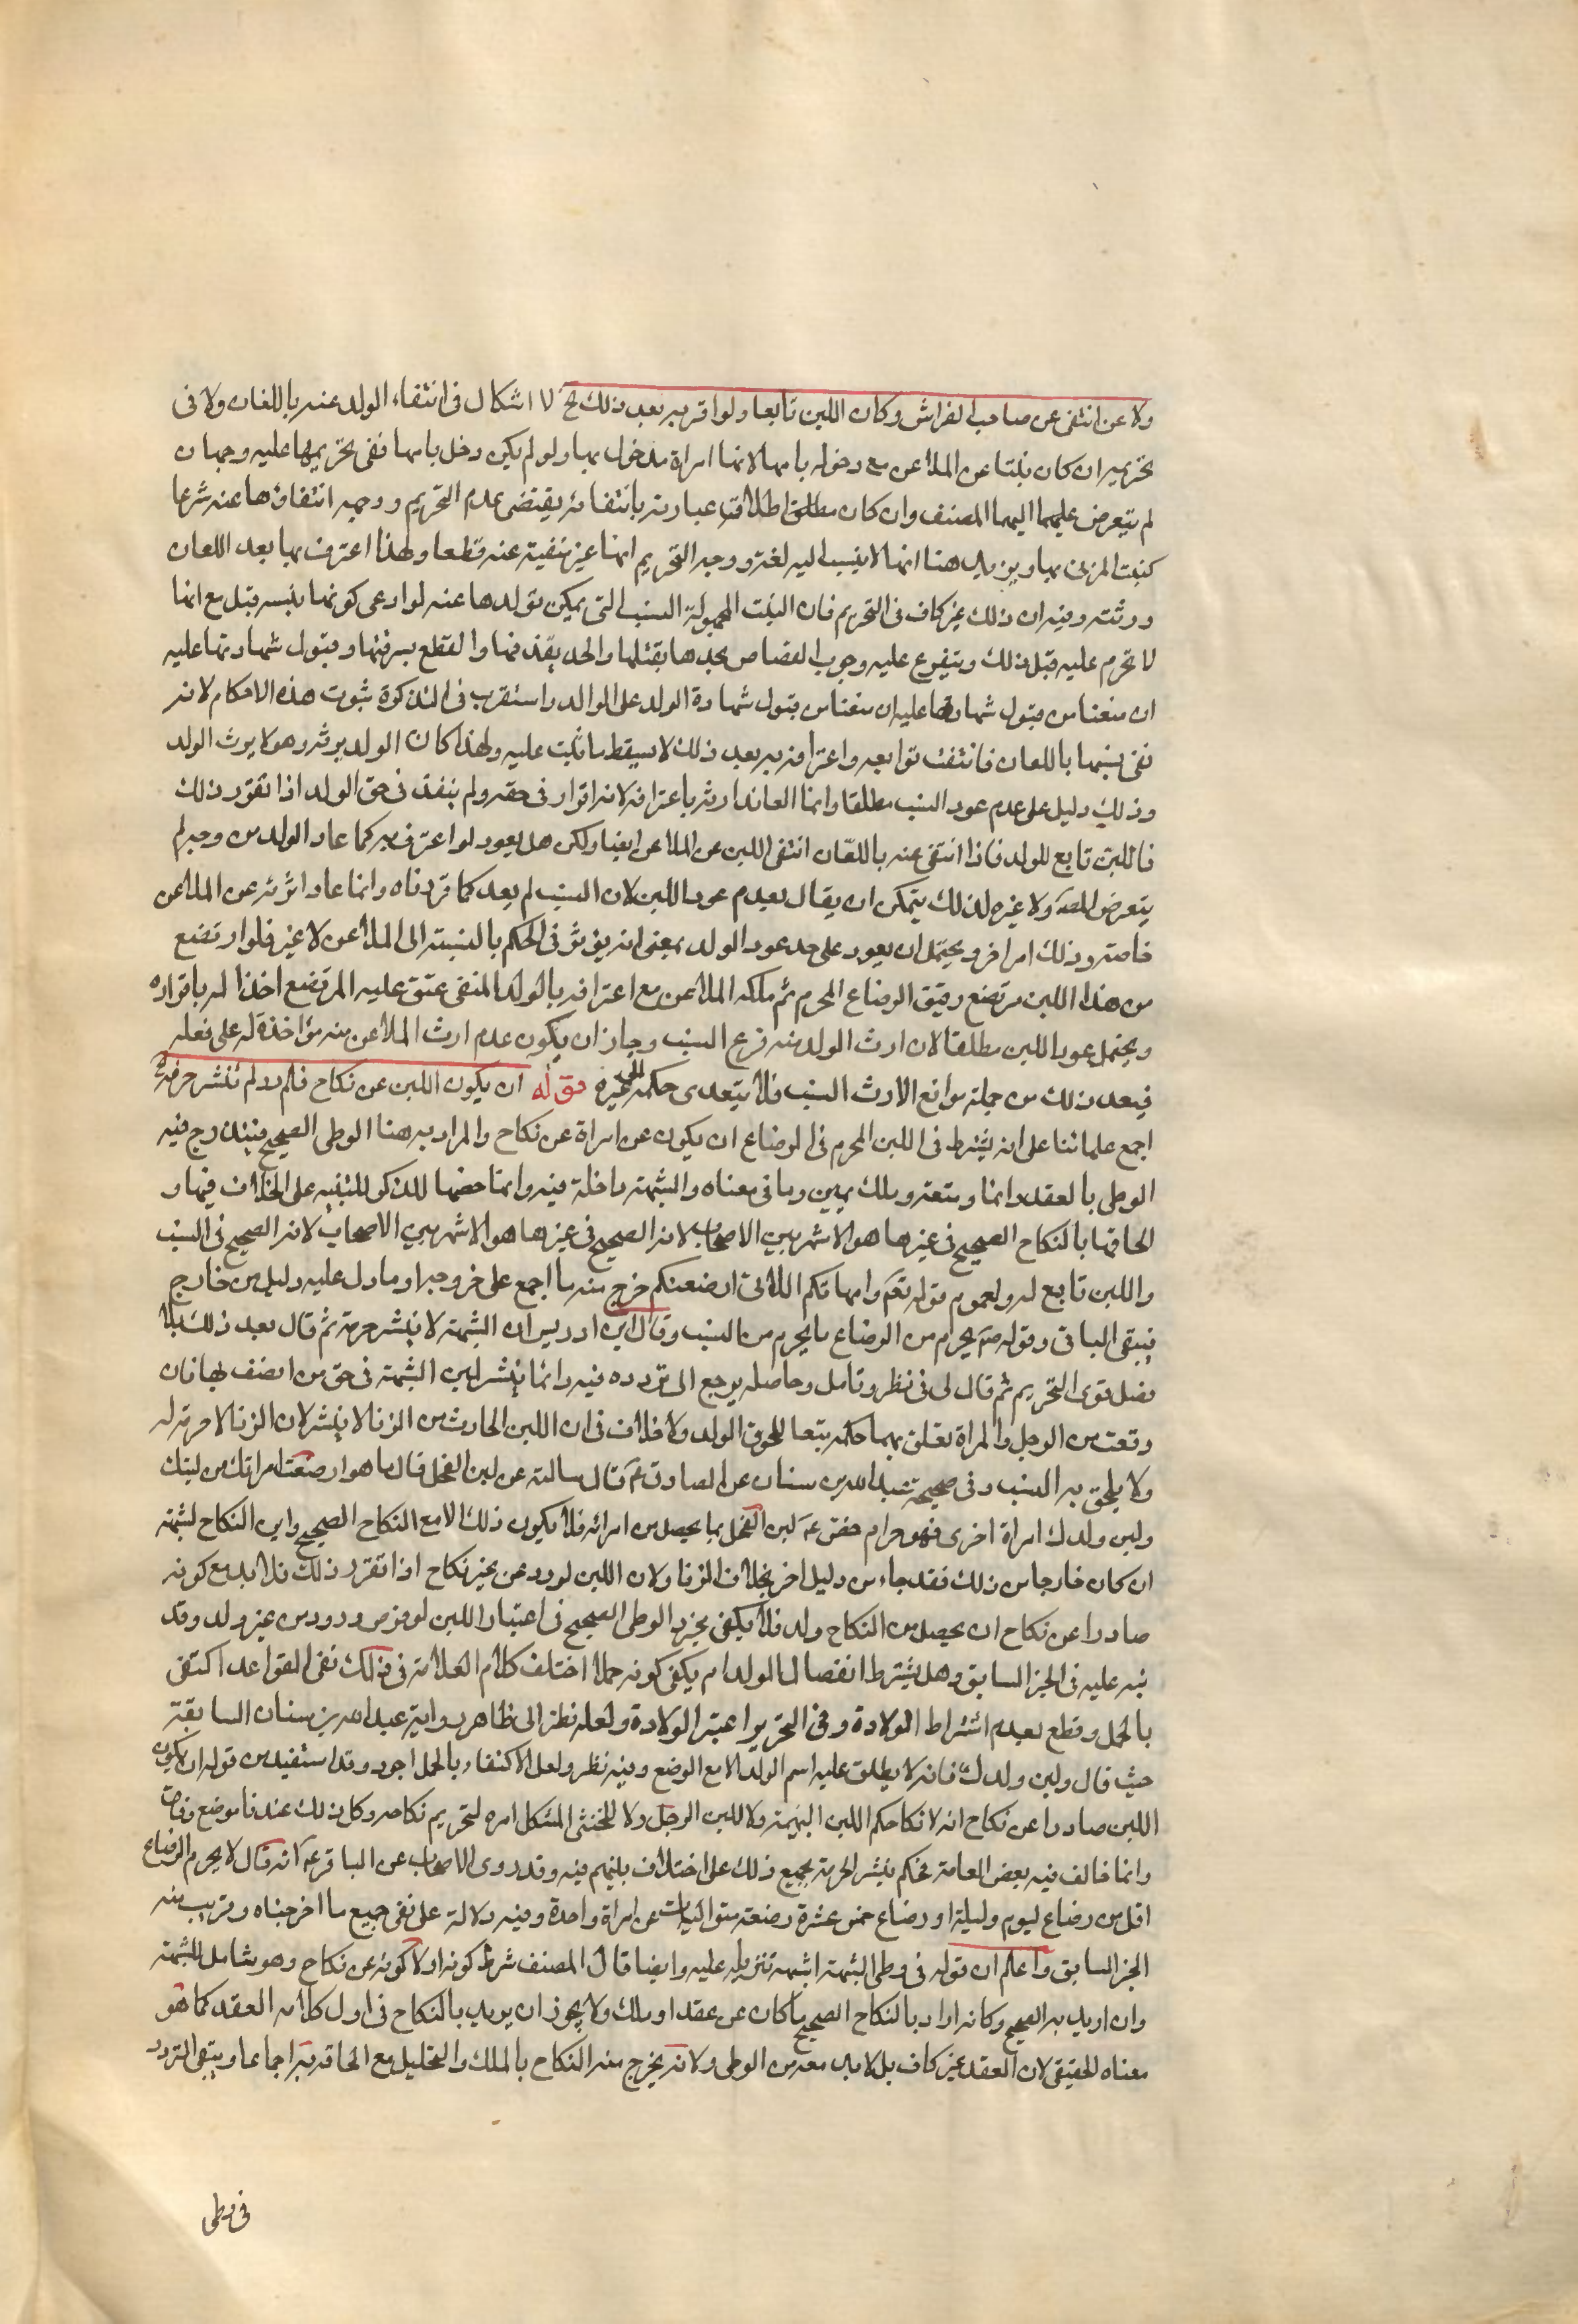 ولاعن انتفى عن صاحب الفراش وكان اللبن تابعا ولو اقر به بعد ذلك الخ لا اشكال في انتفاء الولد عنه باللعان ولا في
تحريمه ان كان بنتا عن الملاعن مع دخوله بامها لانها امراة مدخول بها ولو لم يكن دخل بامها ففي تحريمها عليه وجهان
لم يتعرض عليهما اليهما المصنف وان كان مطلق اطلاق عبارته بانتفائه يقتضى عدم التحريم ووجهه انتفاؤها عنه شرعا
كبنت المزنى بها ويزيد هنا انها لا ينسب اليه لغة ووجه التحريم انها غير منفية عنه قطعا ولهذا اعترف بها بعد اللعان
وورثته وفيه ان ذلك غير كاف في التحريم فان البنت المجهولة النسب التي يمكن تولدها عنه لو ادعى كونها بنسبه قبل مع انها
لا تحرم عليه قبل ذلك ويتفرع عليه وجوب القصاص بحدها بقتلها والحد بقذفها والقطع بسرقتها وقبول شهادتها عليه
ان منعنا من قبول شهادتها عليه ان منعنا من قبول شهادة الولد على الوالد واستقرب في التذكرة ثبوت هذه الاحكام لانه
نفى نسبها باللعان فانتفت توابعه واعترافه به بعد ذلك لا يسقط ما ثبت عليه ولهذا كان الولد يرثه وهو لا يرث الولد
وذلك دليل على عدم عود النسب مطلقا وانما العائد ارثه باعترافه لانه اقرار في حقه ولم ينفذ في حق الولد اذا تقرر ذلك
فاللبن تابع للولد فاذا انتفى عنه باللعان انتفى اللبن عن الملاعن ايضا ولكن هل يعود لو اعترف به كما عاد الولد من وجه لم
يتعرض المصّ ولا غيره لذلك يتمكن ان يقال بعدم عود اللبن لان النسب لم يعد كما قررناه وانما عاد ارثه عن الملاعن
خاصة وذلك امر اخر ويحتمل ان يعود على حد عود الولد بمعنى انه يؤثر في الحكم بالنسبة الى الملاعن لا غير فلو ارتضع
من هذا اللبن مرتضع رقيق الرضاع المحرم ثم ملكه الملاعن مع اعترافه بالولد المنفى عتق عليه المرتضع اخذا له باقراره
ويحتمل عود اللبن مطلقا لان ارث الولد منه فرع النسب وجاز ان يكون عدم ارث الملاعن منه مؤاخذة له على فعله
فيعد ذلك من جملة موانع الارث النسب فلا يتعدى حكمه الى غيره قوله ان يكون اللبن عن نكاح فلو در لم تنشر حرمته
اجمع علمائنا على انه يشترط في اللبن المحرم في الرضاع ان يكون عن امراة عن نكاح والمراد به هنا الوطى الصحيح فيندرج فيه
الوطى بالعقد دائما ومتعة وملك يمين وما في معناه والشبهة داخلة فيه وانما خصها للذكر للتنبيه على الخلاف فيها و
الحاقها بالنكاح الصحيح في غيرها هو الاشهر بين الاصحاب لانه الصحيح في غيرها هو الاشهر بين الاصحاب لانه الصحيح في النسب
واللبن تابع له ولعموم قوله تعم وامهاتكم اللاتى ارضعنكم خرج منه ما اجمع على خروجه او ما دل عليه دليل من خارج
فيبقى الباقى وقوله صم يحرم من الرضاع ما يحرم من النسب وقال ابن ادريس ان الشبهة لا ينشر حرمة ثم قال بعد ذلك بلا
فصل قوى التحريم ثم قال لى في نظر وتامل وحاصله يرجع الى تردده فيه وانما ينشر لبن الشبهة في حق من اتصف بها فان
وقعت من الرجل والمراة تعلق بهما حكمه تبعا للحوق الولد ولا خلاف في ان اللبن الحادث من الزنا لا ينشر لان الزنا لا حرمة له
ولا يلحق به النسب وفى صحيحة عبد الله بن سنان عن الصادق عم قال سالته عن لبن الفحل قال ما هو ارضعت امراتك من لبنك
ولبن ولدك امراة اخرى فهو حرام خص عم لبن الفحل بما يحصل من امراته فلا يكون ذلك الا مع النكاح الصحيح واين النكاح لشبهة
ان كان خارجا من ذلك فقد جاء من دليل اخر بخلاف الزنا ولان اللبن لو در عن غير نكاح اذا تقرر ذلك فلابد مع كونه
صادرا عن نكاح ان يحصل من النكاح ولد فلا يكفى مجرد الوطى الصحيح في اعتبار اللبن لو فرض دروره من غير ولد وقد
نبه عليه في الجز السابق وهل يشترط انفصال الولد ام يكفى كونه حملا اختلف كلام العلامة في ذلك ففى القواعد اكتفى
بالحمل وقطع بعدم اشتراط الولادة وفى التحرير اعتبر الولادة ولعله نظر الى ظاهر رواية عبد الله بن سنان السابقة
حيث قال ولبن ولدك فانه لا يطلق عليه اسم الولد الا مع الوضع وفيه نظر ولعل الاكتفاء بالحمل اجود وقد استفيد من قوله ان يكون
اللبن صادرا عن نكاح انه لا نكاحكم اللبن البهيمة ولا للبن الرجل ولا للخنثى المشكل امره لتحريم نكاحه وكل ذلك عندنا موضع وفاق
وانما خالف فيه بعض العامة فحكم بنشر الحرمة بجميع ذلك على اختلاف بينهم فيه وقد روى الاصحاب عن الباقر عم انه قال لا يحرم الرضاع
اقل من رضاع ليوم وليلة او رضاع خمس عشرة رضعة متواليات عن امراة واحدة وفيه دلالة على نفى جميع ما اخرجناه وقريب منه
الجز السابق واعلم ان قوله فى وطى الشبهة اشبهه تنزيله عليه وايضا قال المصنف شرط كونه اولا كونه عن نكاح وهو شامل للشبهة
وان اريد به الصحيح وكانه اراد بالنكاح الصحيح ما كان عن عقد او ملك ولا يجوز ان يريد بالنكاح في اول كلامه العقد كما هو
معناه الحقيقى لان العقد غير كاف بل لا بد معه من الوطى ولانه يخرج منه النكاح بالملك والتحليل مع الحاقه به اجماعا ويبقى التردد
في وطى